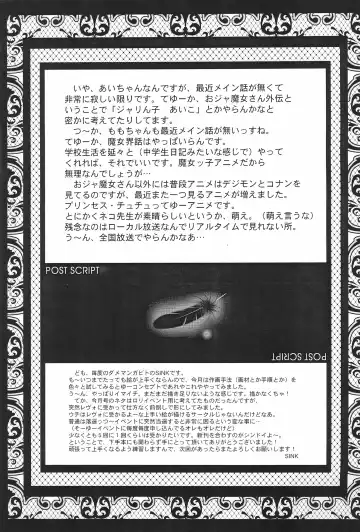 いや、あいちゃんなんですが、最近メイン話が無くて
非常に寂しい限りです。てゆーか、おジャ魔女さん外伝と
いうことで「ジャリん子 あいこ」とかやらんかなと
密かに考えてたりします。
つ〜か、ももちゃんも最近メイン話が無いっすね。
てゆーか、魔女界話はやっぱいらんです。
学校生活を延々と（中学生日記みたいな感じで）やって
くれれば、それでいいです。魔女ッ子アニメだから
無理なんでしょうが…
おジャ魔女さん以外には普段アニメはデジモンとコナンを
見てるのですが、最近また一つ見るアニメが増えました。
プリンセス・チュチュってゆーアニメです。
とにかくネコ先生が素晴らしいというか、萌え。（萌え言うな）
残念なのはローカル放送なんでリアルタイムで見れない所。
う〜ん、全国放送でやらんかなあ…
POST SCRIPT
POST SCRIPT
ども、毎度のダメマンガビトのSINKです。
も〜いつまでたっても絵が上手くならんので、今月は作画手法（画材とか手順とか）を
色々と試してみるとゆーコンセプトであれやこれややってみました。
う〜ん、やっぱりイマイチ。まだまだ描き足りないような感じです。描かなくちゃ！
てか、今月号のネタはロリイベント用に考えてたものだったんですが、
突然レヴォに受かって仕方なく前倒しで形にしてみました。
ウチはレヴォに受かるような上手い絵が描けるサークルじゃないんだけどなあ。
普通は落選っつーイベントに突然当選すると非常に困るという変な事に…
（そーゆーイベントに毎度毎度申し込んでるオレもオレだけど）
少なくとも１回に１回くらいは受かりたいです。数列を合わすのがシンドイよ〜。
ということで、下手本にも関わらず手にとって頂いてありがとうございました！
頑張って上手くなるよう練習しますんで、次回があったらまたよろしくお願いします！
SINK